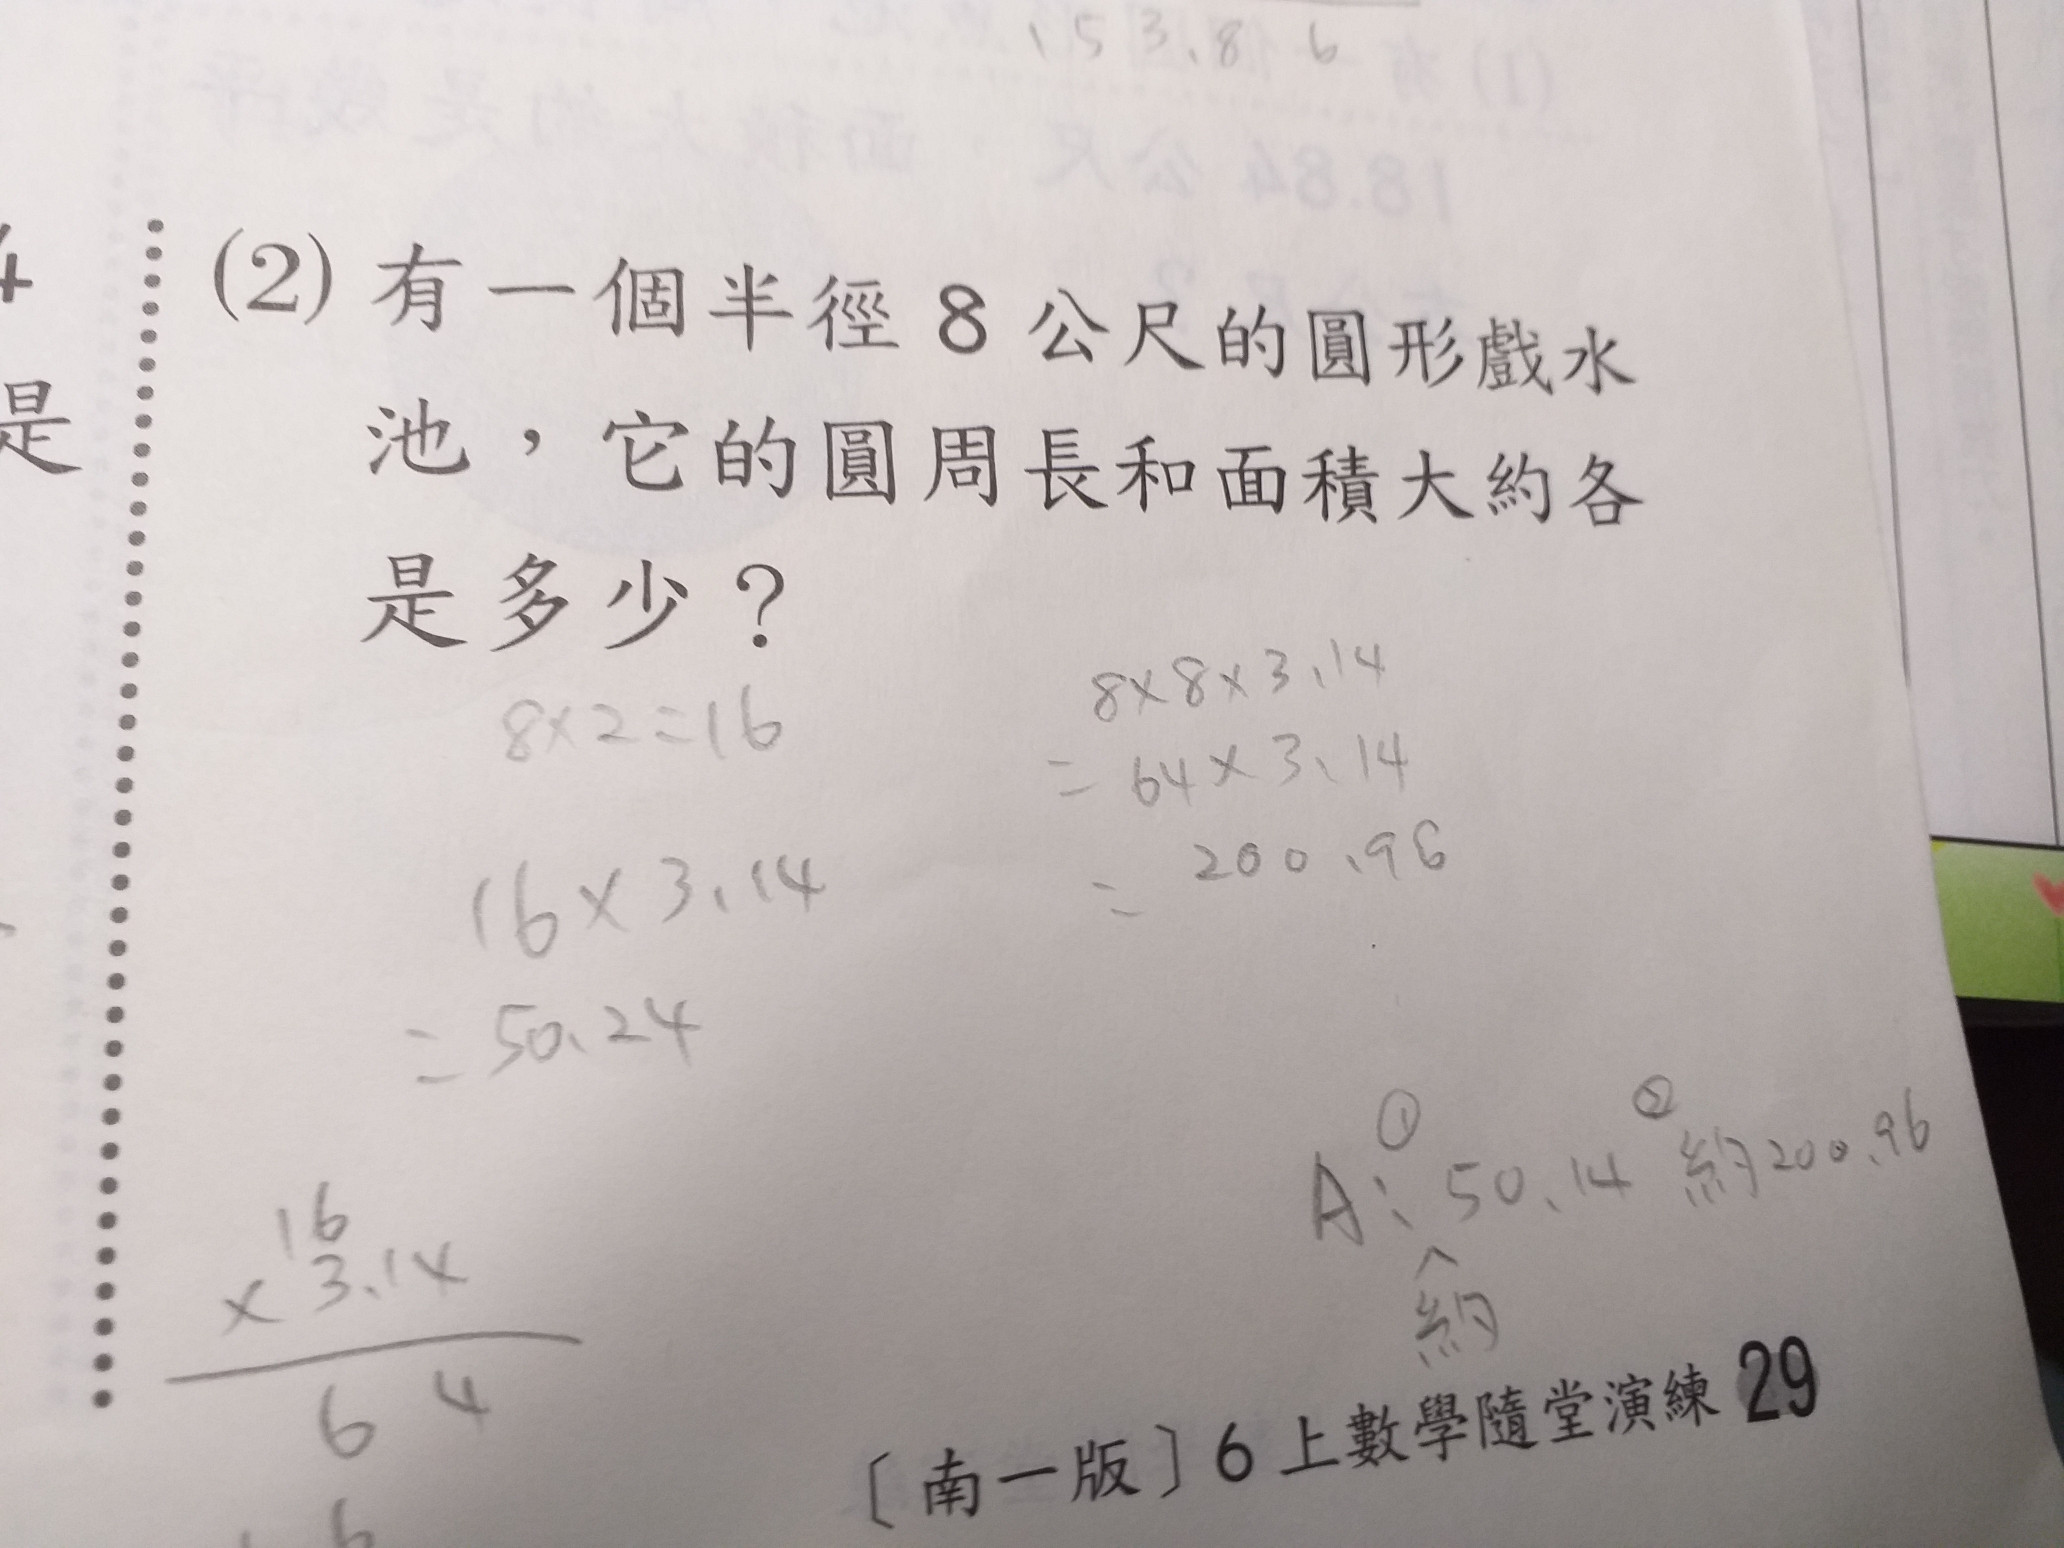 153.86
4
是
(2) 有一個半徑 8 公尺的圓形戲水
池，它的圓周長和面積大約各
是多少？
8×2=16
16×3.14
=50.24
16
×3.14
6 4
1 6
8×8×3.14
=64×3.14
=200.96
① ②
A：50.14 約200.96
^
約
〔南一版〕6上數學隨堂演練 29